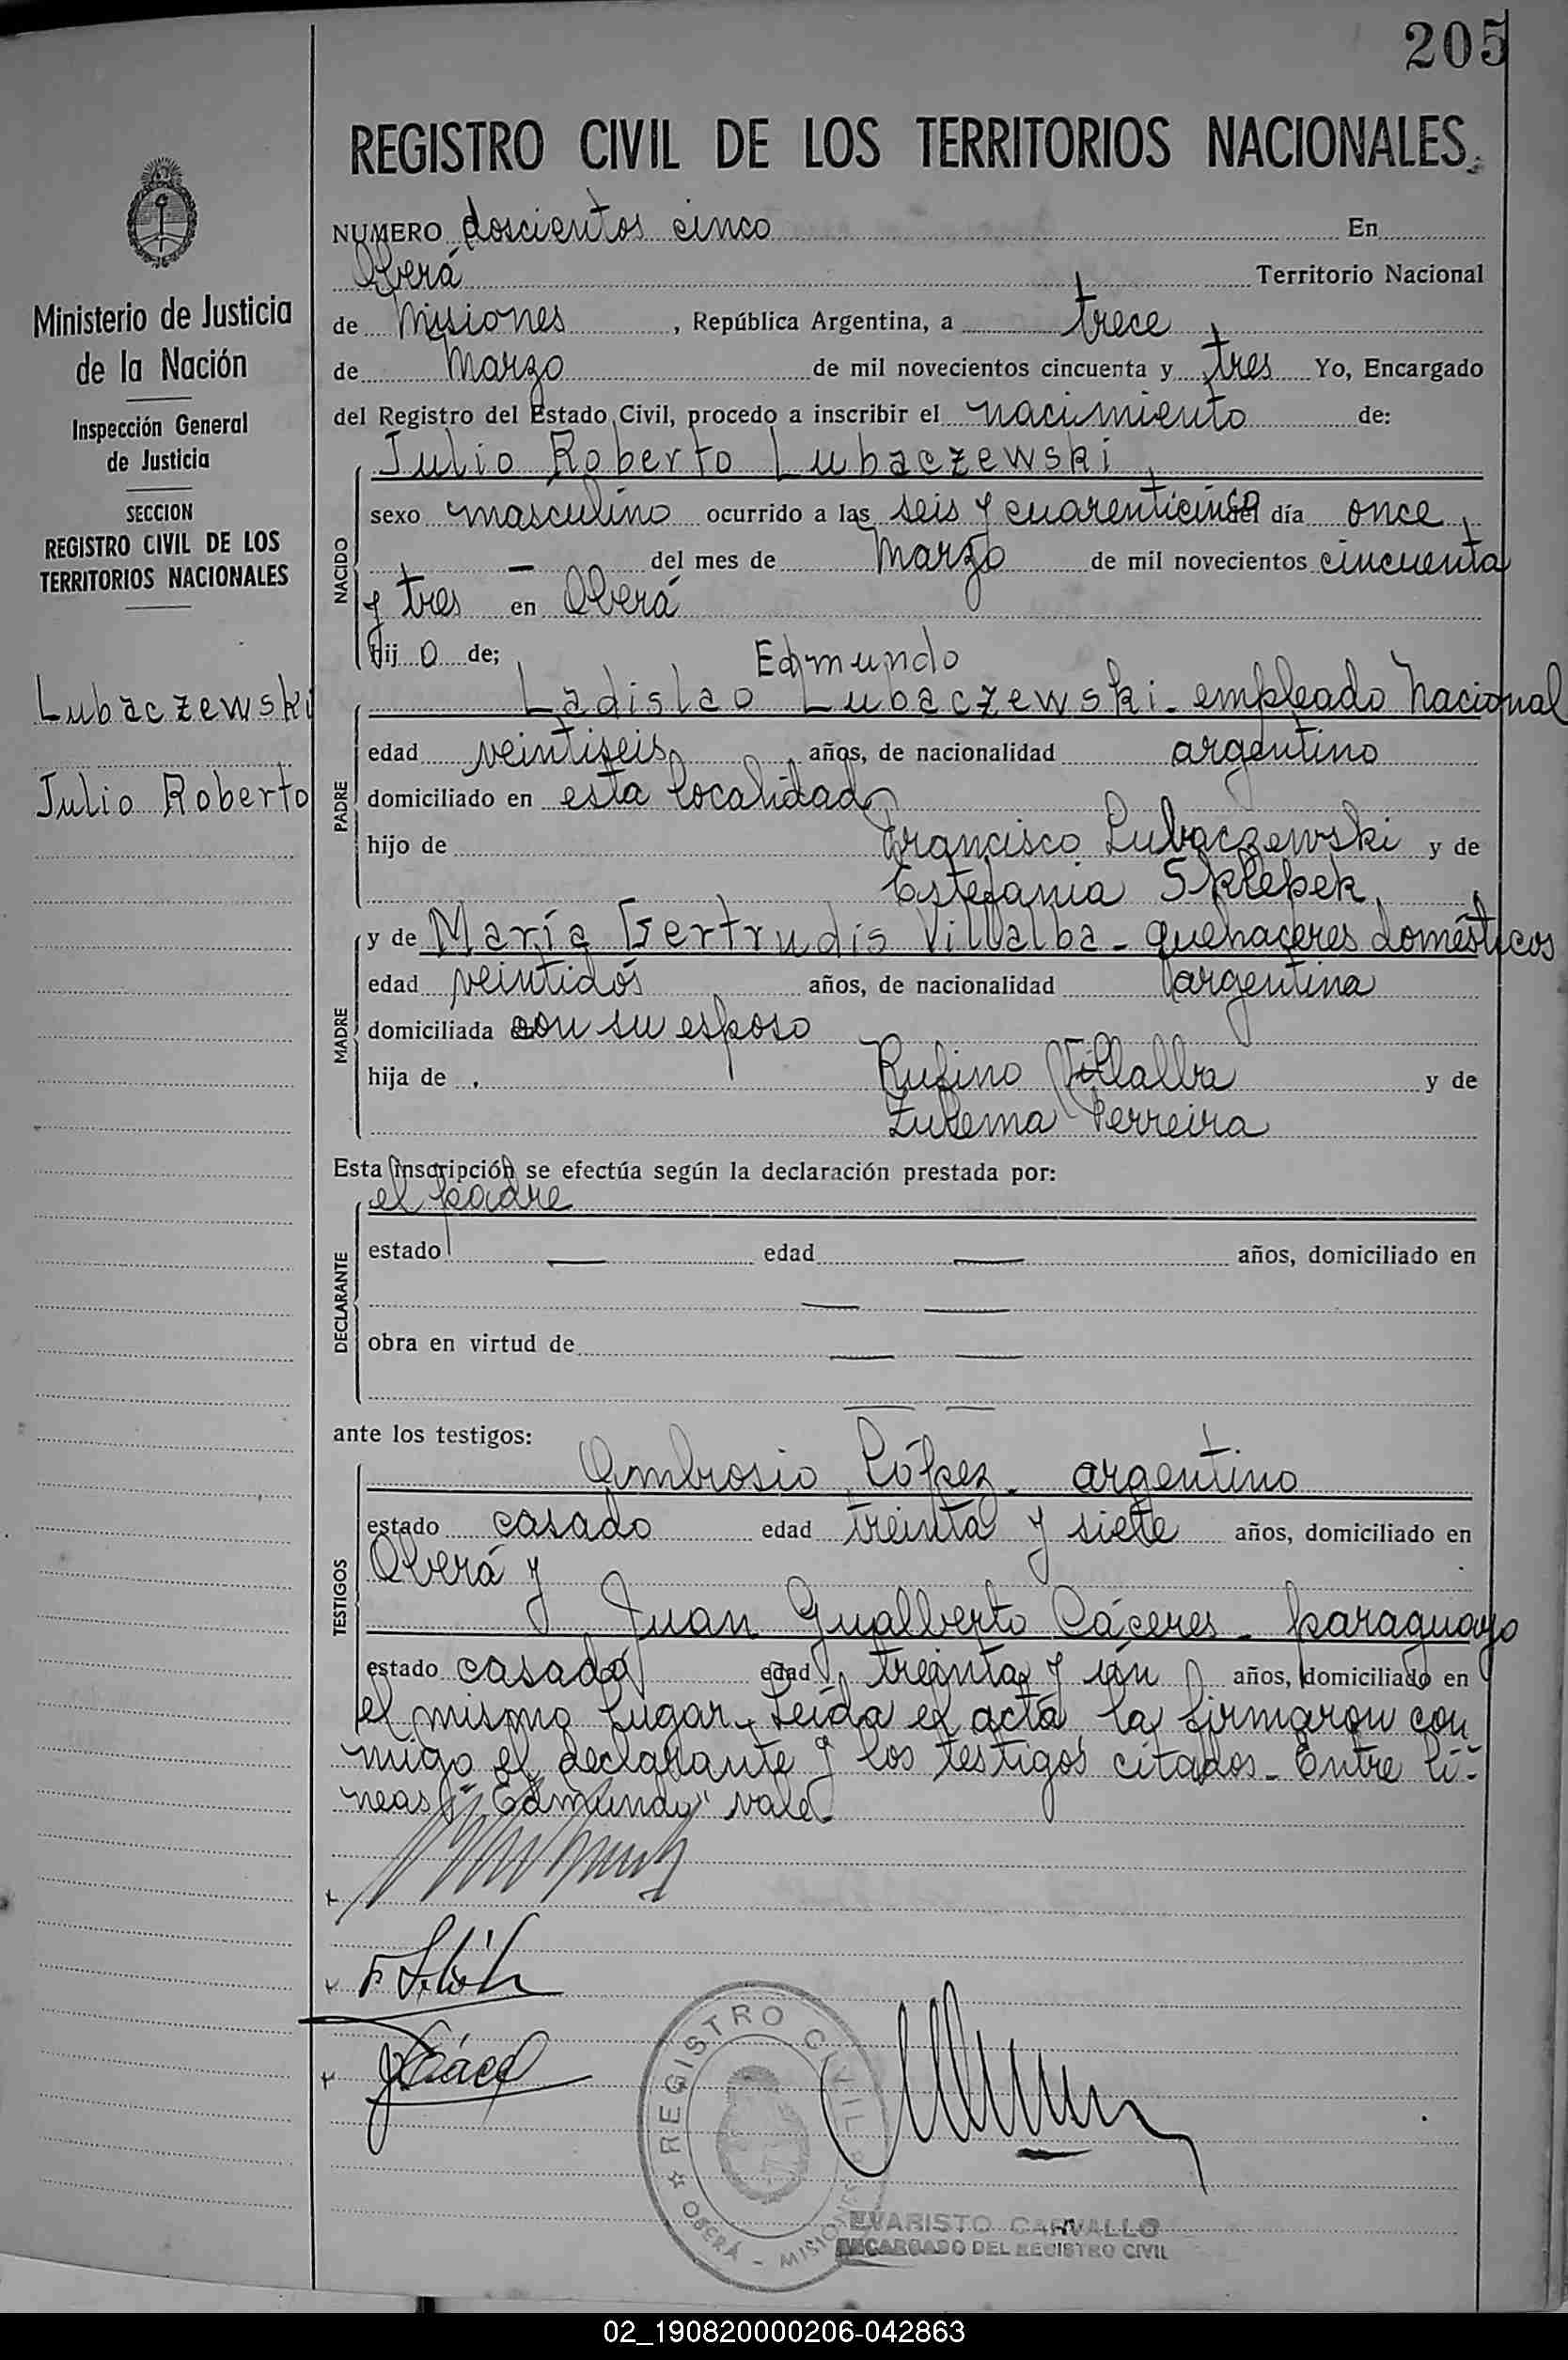 205
REGISTRO CIVIL DE LOS TERRITORIOS NACIONALES.
Ministerio de Justicia
de la Nación
Inspección General
de Justicia
SECCION
REGISTRO CIVIL DE LOS
TERRITORIOS NACIONALES
Lubaczewski
Julio Roberto
NUMERO doscientos cinco En
Oberá Territorio Nacional
de Misiones, República Argentina, a trece
de Marzo de mil novecientos cincuenta y tres Yo, Encargado
del Registro del Estado Civil, procedo a inscribir el nacimiento de:
NACIDO
Julio Roberto Lubaczewski
sexo masculino ocurrido a las seis y cuarenticinco del día once
— del mes de Marzo de mil novecientos cincuenta
y tres en Oberá
hij o de;
Edmundo
PADRE
Ladislao Lubaczewski - empleado Nacional
edad veintiseis años, de nacionalidad argentino
domiciliado en esta localidad
hijo de Francisco Lubaczewski y de
Estefania Sklepek
MADRE
y de María Gertrudis Villalba - quehaceres domésticos
edad veintidós años, de nacionalidad argentina
domiciliada con su esposo
hija de Rufino Villalba y de
Zulema Ferreira
Esta inscripción se efectúa según la declaración prestada por:
DECLARANTE
el padre
estado — edad — años, domiciliado en
— —
obra en virtud de — —
— —
ante los testigos:
TESTIGOS
Ambrosio López - argentino
estado casado edad treinta y siete años, domiciliado en
Oberá y
Juan Gualberto Cáceres - paraguayo
estado casado edad treinta y un años, domiciliado en
el mismo lugar. Leída el acta la firmaron con
migo el declarante y los testigos citados - Entre lí-
neas "Edmundo" vale.
REGISTRO CIVIL
OBERÁ - MISIONES
EVARISTO CARVALLO
ENCARGADO DEL REGISTRO CIVIL
02_190820000206-042863